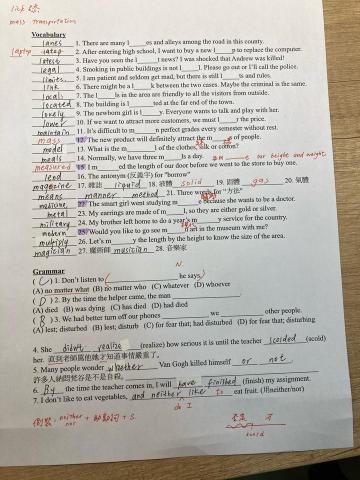 mass transportation
Vocabulary
lanes 1. There are many l____es and alleys among the road in this county.
laptop 2. After entering high school, I want to buy a new l____p to replace the computer.
latest 3. Have you seen the l____t news? I was shocked that Andrew was killed!
legal 4. Smoking in public buildings is not l____l. Please go out or I'll call the police.
limits 5. I am patient and seldom get mad, but there is still l____ts and rules.
link 6. There might be a l____k between the two cases. Maybe the criminal is the same.
locals 7. The l____ls in the area are friendly to all the visitors from outside.
located 8. The building is l____ted at the far end of the town.
lovely 9. The newborn girl is l____y. Everyone wants to play and talk with her.
lower 10. If we want to attract more customers, we must l____r the price.
maintain 11. It's difficult to m____n perfect grades every semester without rest.
mass 12. The new product will definitely attract the m____s of people.
model 13. What is the m____l of the clothes, silk or cotton?
meals 14. Normally, we have three m____ls a day.
measured 15. I m____ed the length of our door before we went to the store to buy one.
our height and weight
lend 16. The antonym (反義字) for "borrow"
magazine 17. 雜誌 liquid 18. 液體 solid 19. 固體 gas 20. 氣體
means manner method 21. Three words for "方法"
medicine 22. The smart girl went studying m____e because she wants to be a doctor.
metal 23. My earrings are made of m____l, so they are either gold or silver.
military 24. My brother left home to do a year's m____y service for the country.
modern 25. Would you like to go see m____n art in the museum with me?
multiply 26. Let's m____y the length by the height to know the size of the area.
magician 27. 魔術師 musician 28. 音樂家
Grammar
1. Don't listen to ____ he says.
(A) no matter what (B) no matter who (C) whatever (D) whoever
(D) 2. By the time the helper came, the man ____.
(A) died (B) was dying (C) has died (D) had died
3. We had better turn off our phones ____ we ____ other people.
(A) lest; disturbed (B) lest; disturb (C) for fear that; had disturbed (D) for fear that; disturbing
4. She didn't realize (realize) how serious it is until the teacher scolded (scold) her. 直到老師罵他她才知道事情嚴重了。
5. Many people wonder whether Van Gogh killed himself or not.
許多人納悶梵谷是不是自殺。
6. By the time the teacher comes in, I will have finished (finish) my assignment.
7. I don't like to eat vegetables, and neither like to eat fruit. (用neither/nor)
do I
倒裝: neither nor + 助動詞 + S.